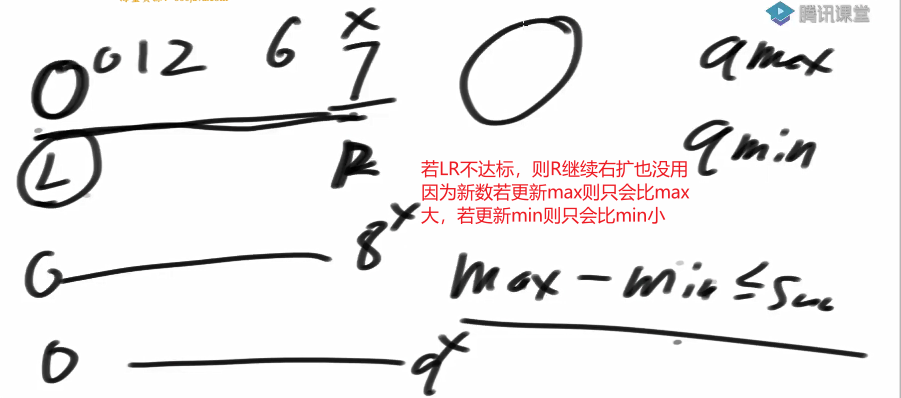 腾讯课堂
0 0 1 2 6 7 x
qmax
qmin
L R
若LR不达标，则R继续右扩也没用
因为新数若更新max则只会比max
大，若更新min则只会比min小
0 8 x
max - min ≤
0 9 x